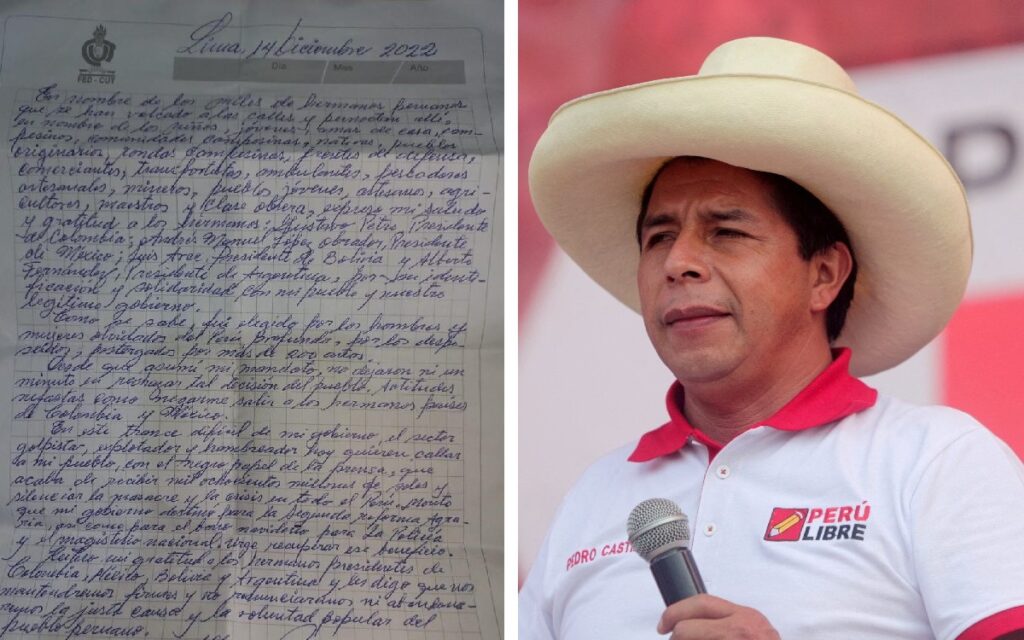 Lima, 14 Diciembre 2022
Día Mes Año
FED - CUT
En nombre de los miles de hermanos peruanos
que se han volcado a las calles y pernoctan allí,
en nombre de los niños, jóvenes, amas de casa, cam-
pesinos, comunidades campesinas, nativas, pueblos
originarios, rondas campesinas, frentes de defensa,
comerciantes, transportistas, ambulantes, pescadores
artesanales, mineros, pueblos jóvenes, artesanos, agri-
cultores, maestros y clase obrera, expreso mi saludo
y gratitud a los hermanos: Gustavo Petro, Presidente
de Colombia; Andrés Manuel López obrador, Presidente
de México; Luis Arce, presidente de Bolivia y Alberto
Fernández, Presidente de Argentina, por su identi-
ficación y solidaridad con mi pueblo y nuestro
legítimo gobierno.
Como se sabe, fui elegido por los hombres y
mujeres olvidados del Perú profundo, por los despo-
seídos, postergados por más de 200 años.
Desde que asumí mi mandato, no dejaron ni un
minuto en rechazar tal decisión del pueblo. Actitudes
nefastas como negarme salir a los hermanos países
de Colombia y México.
En este trance difícil de mi gobierno, el sector
golpista, explotador y hambreador hoy quieren callar
a mi pueblo, con el negro papel de la prensa, que
acaba de recibir mil ochocientos millones de soles y
silenciar la masacre y la crisis en todo el Perú, monto
que mi gobierno destinó para la Segunda reforma Agra-
ria, así como para el bono navideño para la Policía
y el magisterio nacional. Urge recuperar ese beneficio.
Reitero mi gratitud a los hermanos presidentes de
Colombia, México, Bolivia y Argentina y les digo que nos
mantendremos firmes y no renunciaremos ni abandona-
remos la justa causa y la voluntad popular del
pueblo peruano.
PEDRO CAST
PERÚ
LIBRE
D